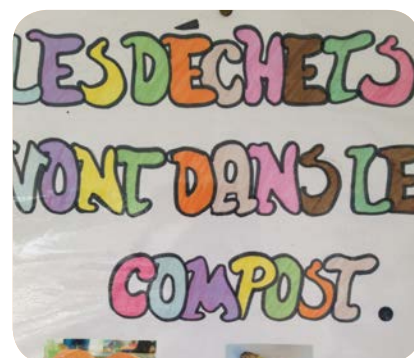 LES DÉCHETS
VONT DANS LE
COMPOST.